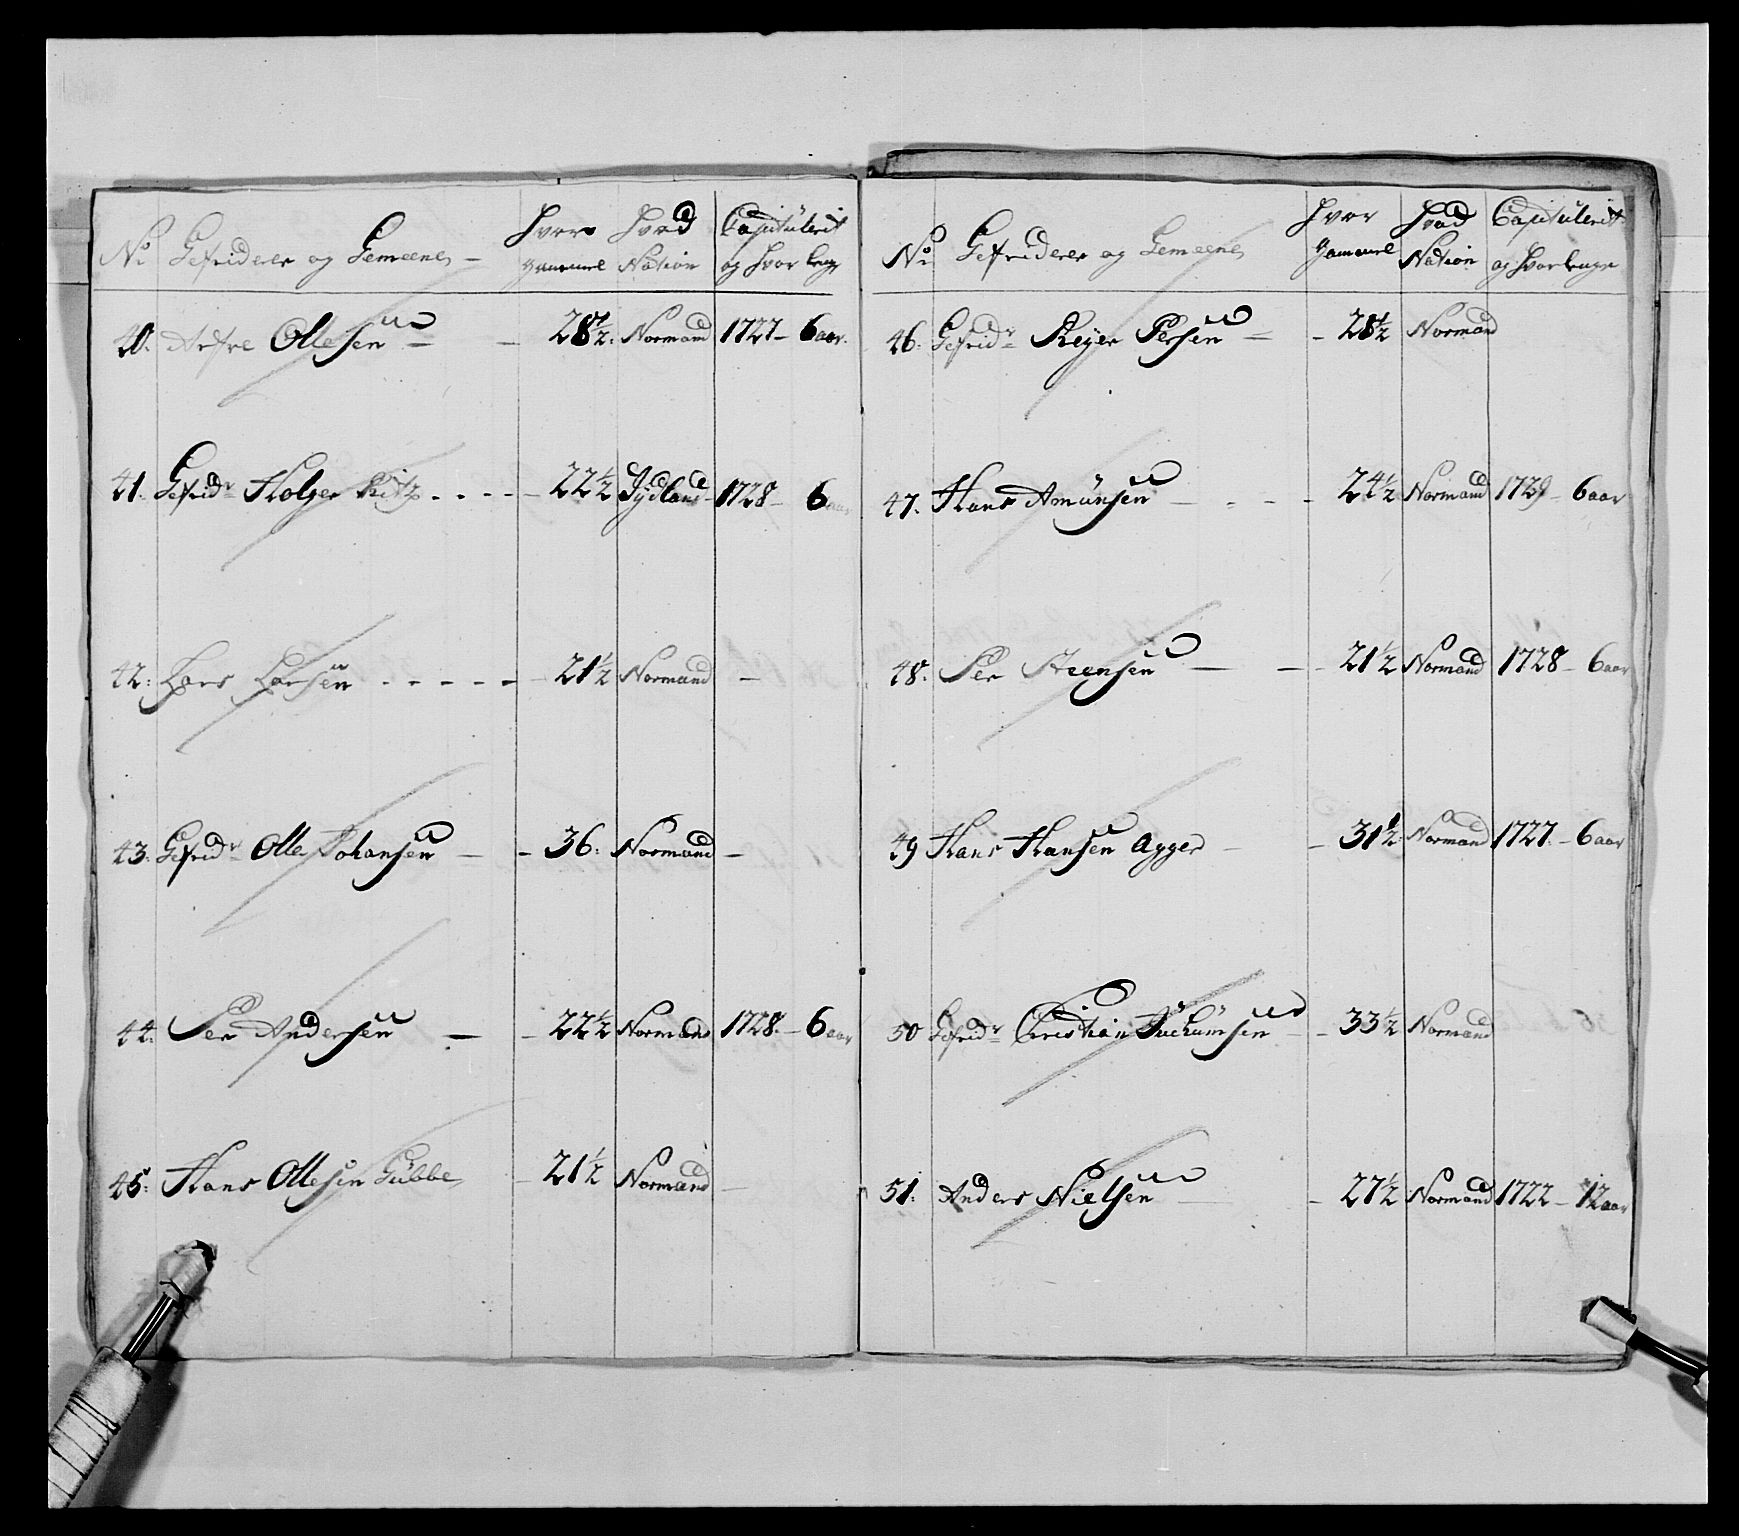 No Gefriderer og Gemeene Hvor Gammel Hvad Nation Capitulerit og hvor lenge
40. Ollesen 28½. Normand 1727 6 aar.
41. Gefridr Holger Ritz 22½ Jydland 1728 6 aar
42: Lars Larsen 21½ Normand
43: Gefridr Olle Johansen 36: Normand
44: Per Andersen 22½ Normand 1728. 6 aar
45: Hans Ollesen Gubbe 21½ Normand
No Gefriderer og Gemeene Hvor Gammel Hvad Nation Capitulerit og hvor lenge
46: Gefridr Reyer Persen 28½ Normand
47. Hans Amünsen 24½ Normand 1729 6 aar
48. Per Steensen 21½ Normand 1728 6 aar
49 Hans Hansen Agger 31½ Normand 1727. 6 aar
50 Gefridr Christian 33½ Normand
51. Anders Nielsen 27½ Normand 1722 12 aar